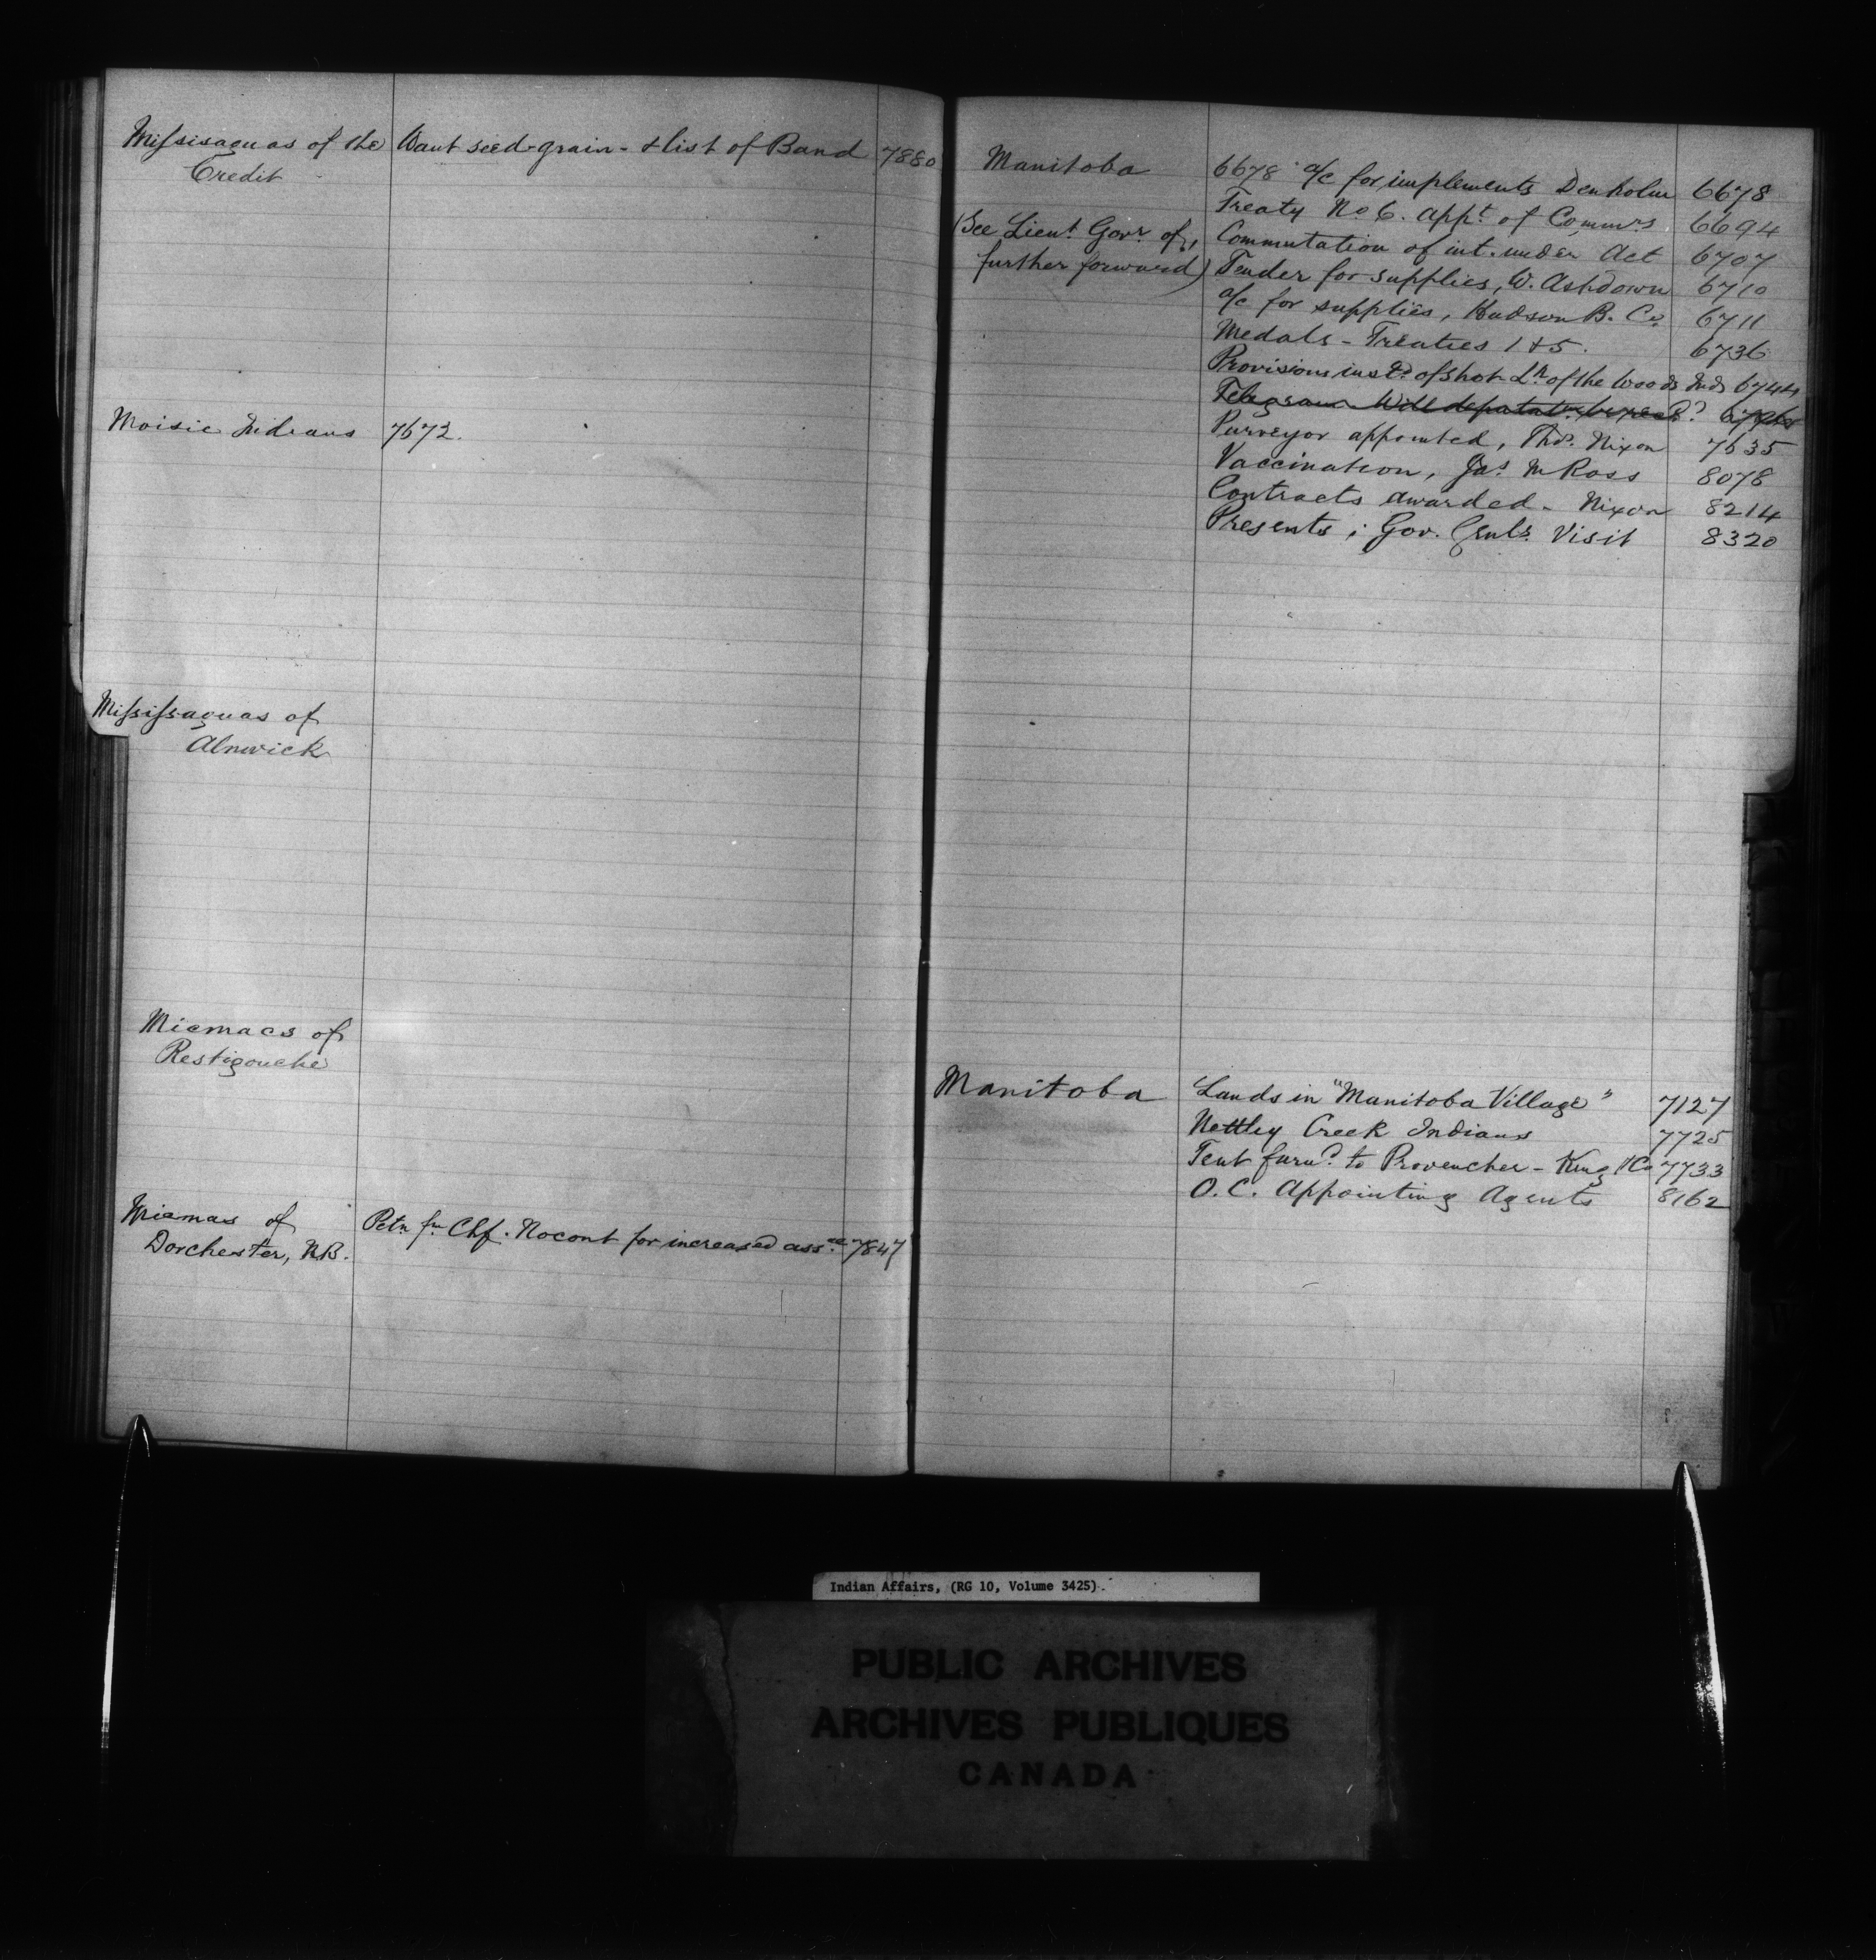 Missisaguas of the Want seed-grain - & list of Band 7880
Credit
Moisie Indians 7672.
Mississaguas of
Alnwick
Micmacs of
Restigouche
Micmas of Petn fm Chf. Nocont for increased ass.ce 7847
Dorchester, N.B.
Manitoba 6678 a/c for implements Denholm 6678
Treaty No 6. appt. of Commrs. 6694
(See Lieut. Govr. of, Commutation of int. under Act 6707
further forward) Tender for supplies, W. Ashdown 6710
a/c for supplies, Hudson B. Co. 6711
Medals - Treaties 1 & 5. 6736
Provisions instd. of shot Lk of the Woods Inds 6744
Telegram Will deputation be recd.?
Purveyor appointed, Thos. Nixon 7635
Vaccination, Jas. McRoss 8078
Contracts awarded - Nixon 8214
Presents; Gov. Genls. Visit 8320
Manitoba Lands in "Manitoba Village" 7127
Nettley Creek Indians 7725
Tent furnd. to Provencher - King & Co 7733
O.C. Appointing Agents 8162
Indian Affairs, (RG 10, Volume 3425).
PUBLIC ARCHIVES
ARCHIVES PUBLIQUES
CANADA